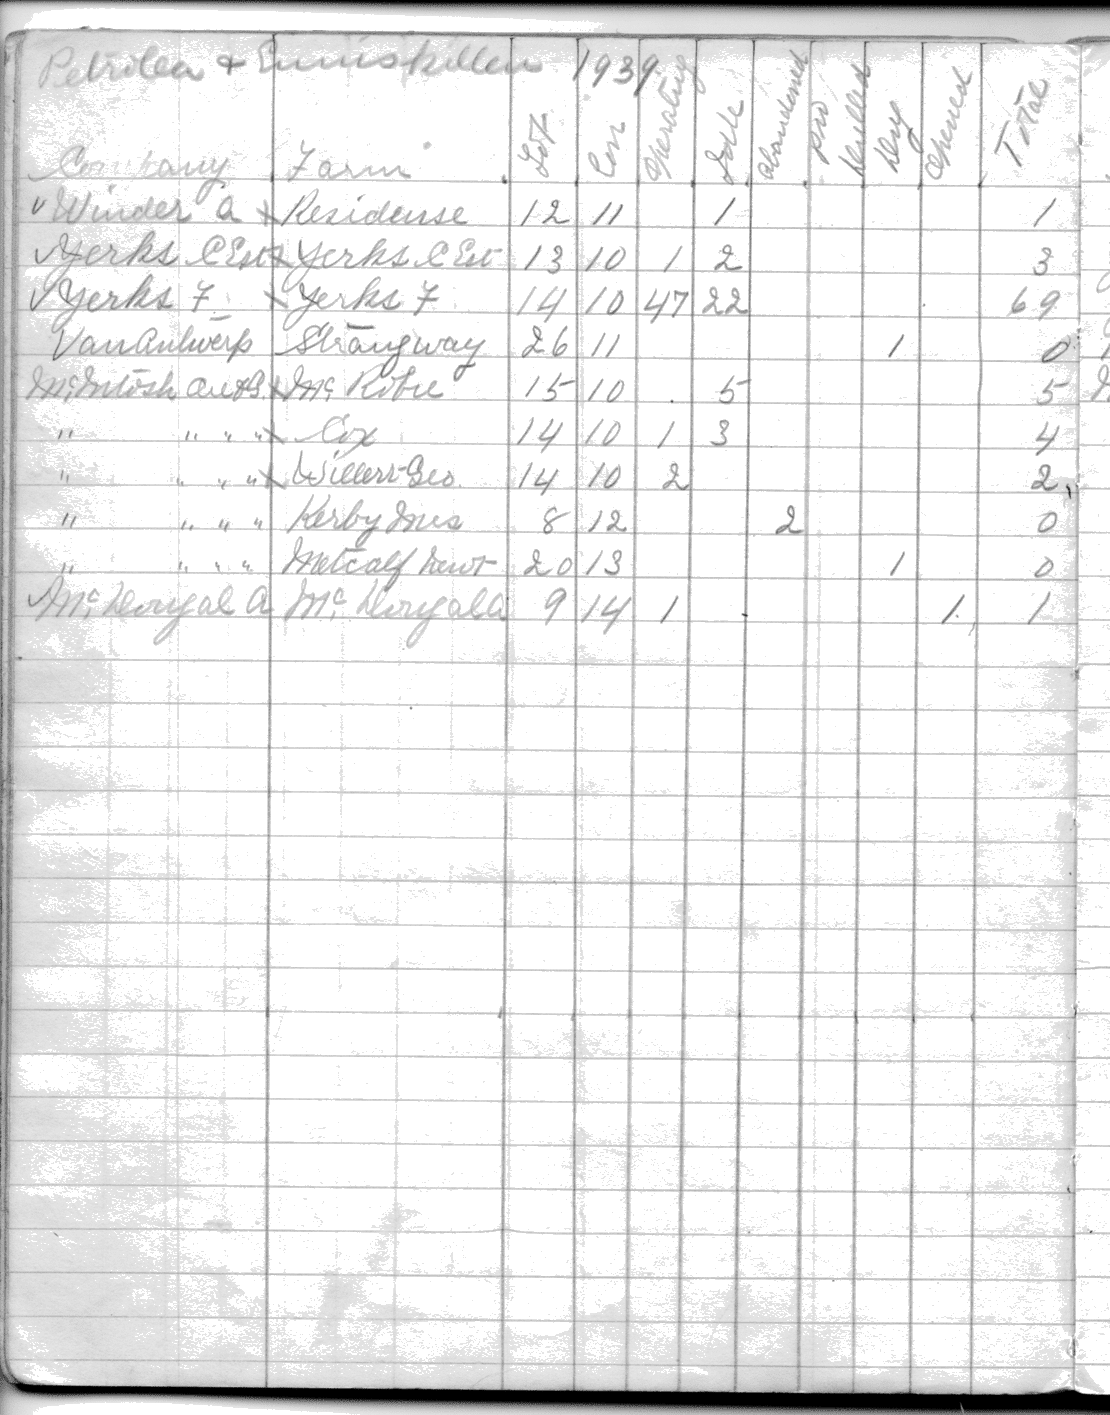 Petrolea + Enniskillen 1939
Company Farm Lot Con Operating Idle Abandoned Pro Drilled Dry Opened Total
✓ Winder A x Residense 12 11 1 1
✓ Yerks C Est x Yerks C Est 13 10 1 2 3
✓ Yerks F. x Yerks F 14 10 47 22 69
VanAntwerp Strangway 26 11 1 0
McIntosh & x Mc Robie 15 10 . 5 5
" " " " x Cox 14 10 1 3 4
" " " " x Willert Geo. 14 10 2 2
" " " " Kerby Mrs 8 12 2 0
" " " " Metcalf Newt 20 13 1 0
✓ Mc Dougal A Mc Dougal A 9 14 1 1. 1